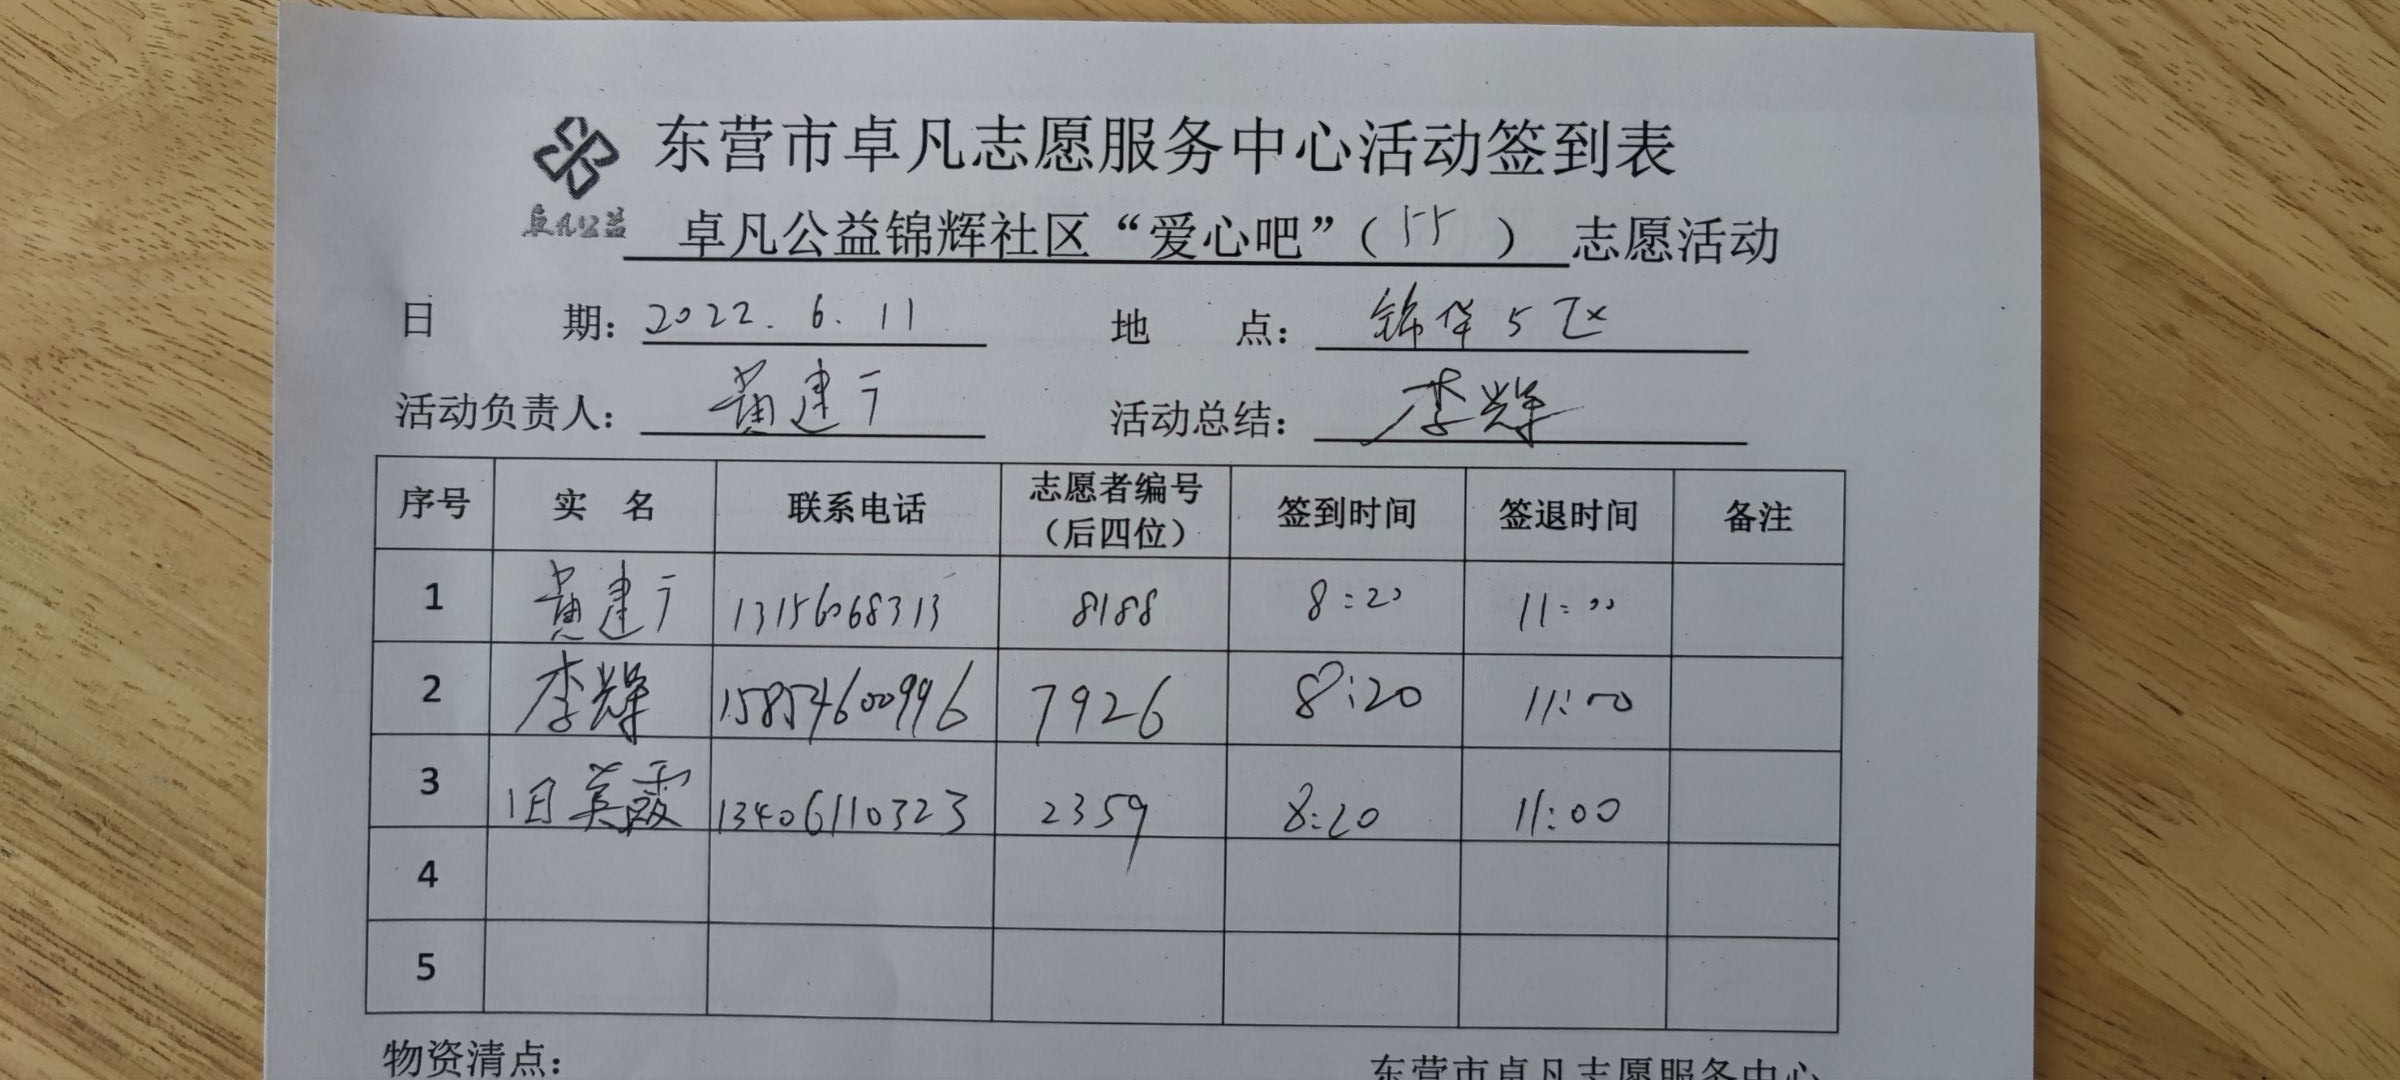 东营市卓凡志愿服务中心活动签到表
卓凡公益
卓凡公益锦辉社区“爱心吧”（55）志愿活动
日 期：2022.6.11 地 点：锦华5区
活动负责人：黄建于 活动总结：李辉
序号 实 名 联系电话 志愿者编号（后四位） 签到时间 签退时间 备注
1 黄建于 13156068313 8188 8:20 11:00
2 李辉 15854600996 7926 8:20 11:00
3 旧英霞 13406110323 2359 8:20 11:00
4
5
物资清点： 东营市卓凡志愿服务中心